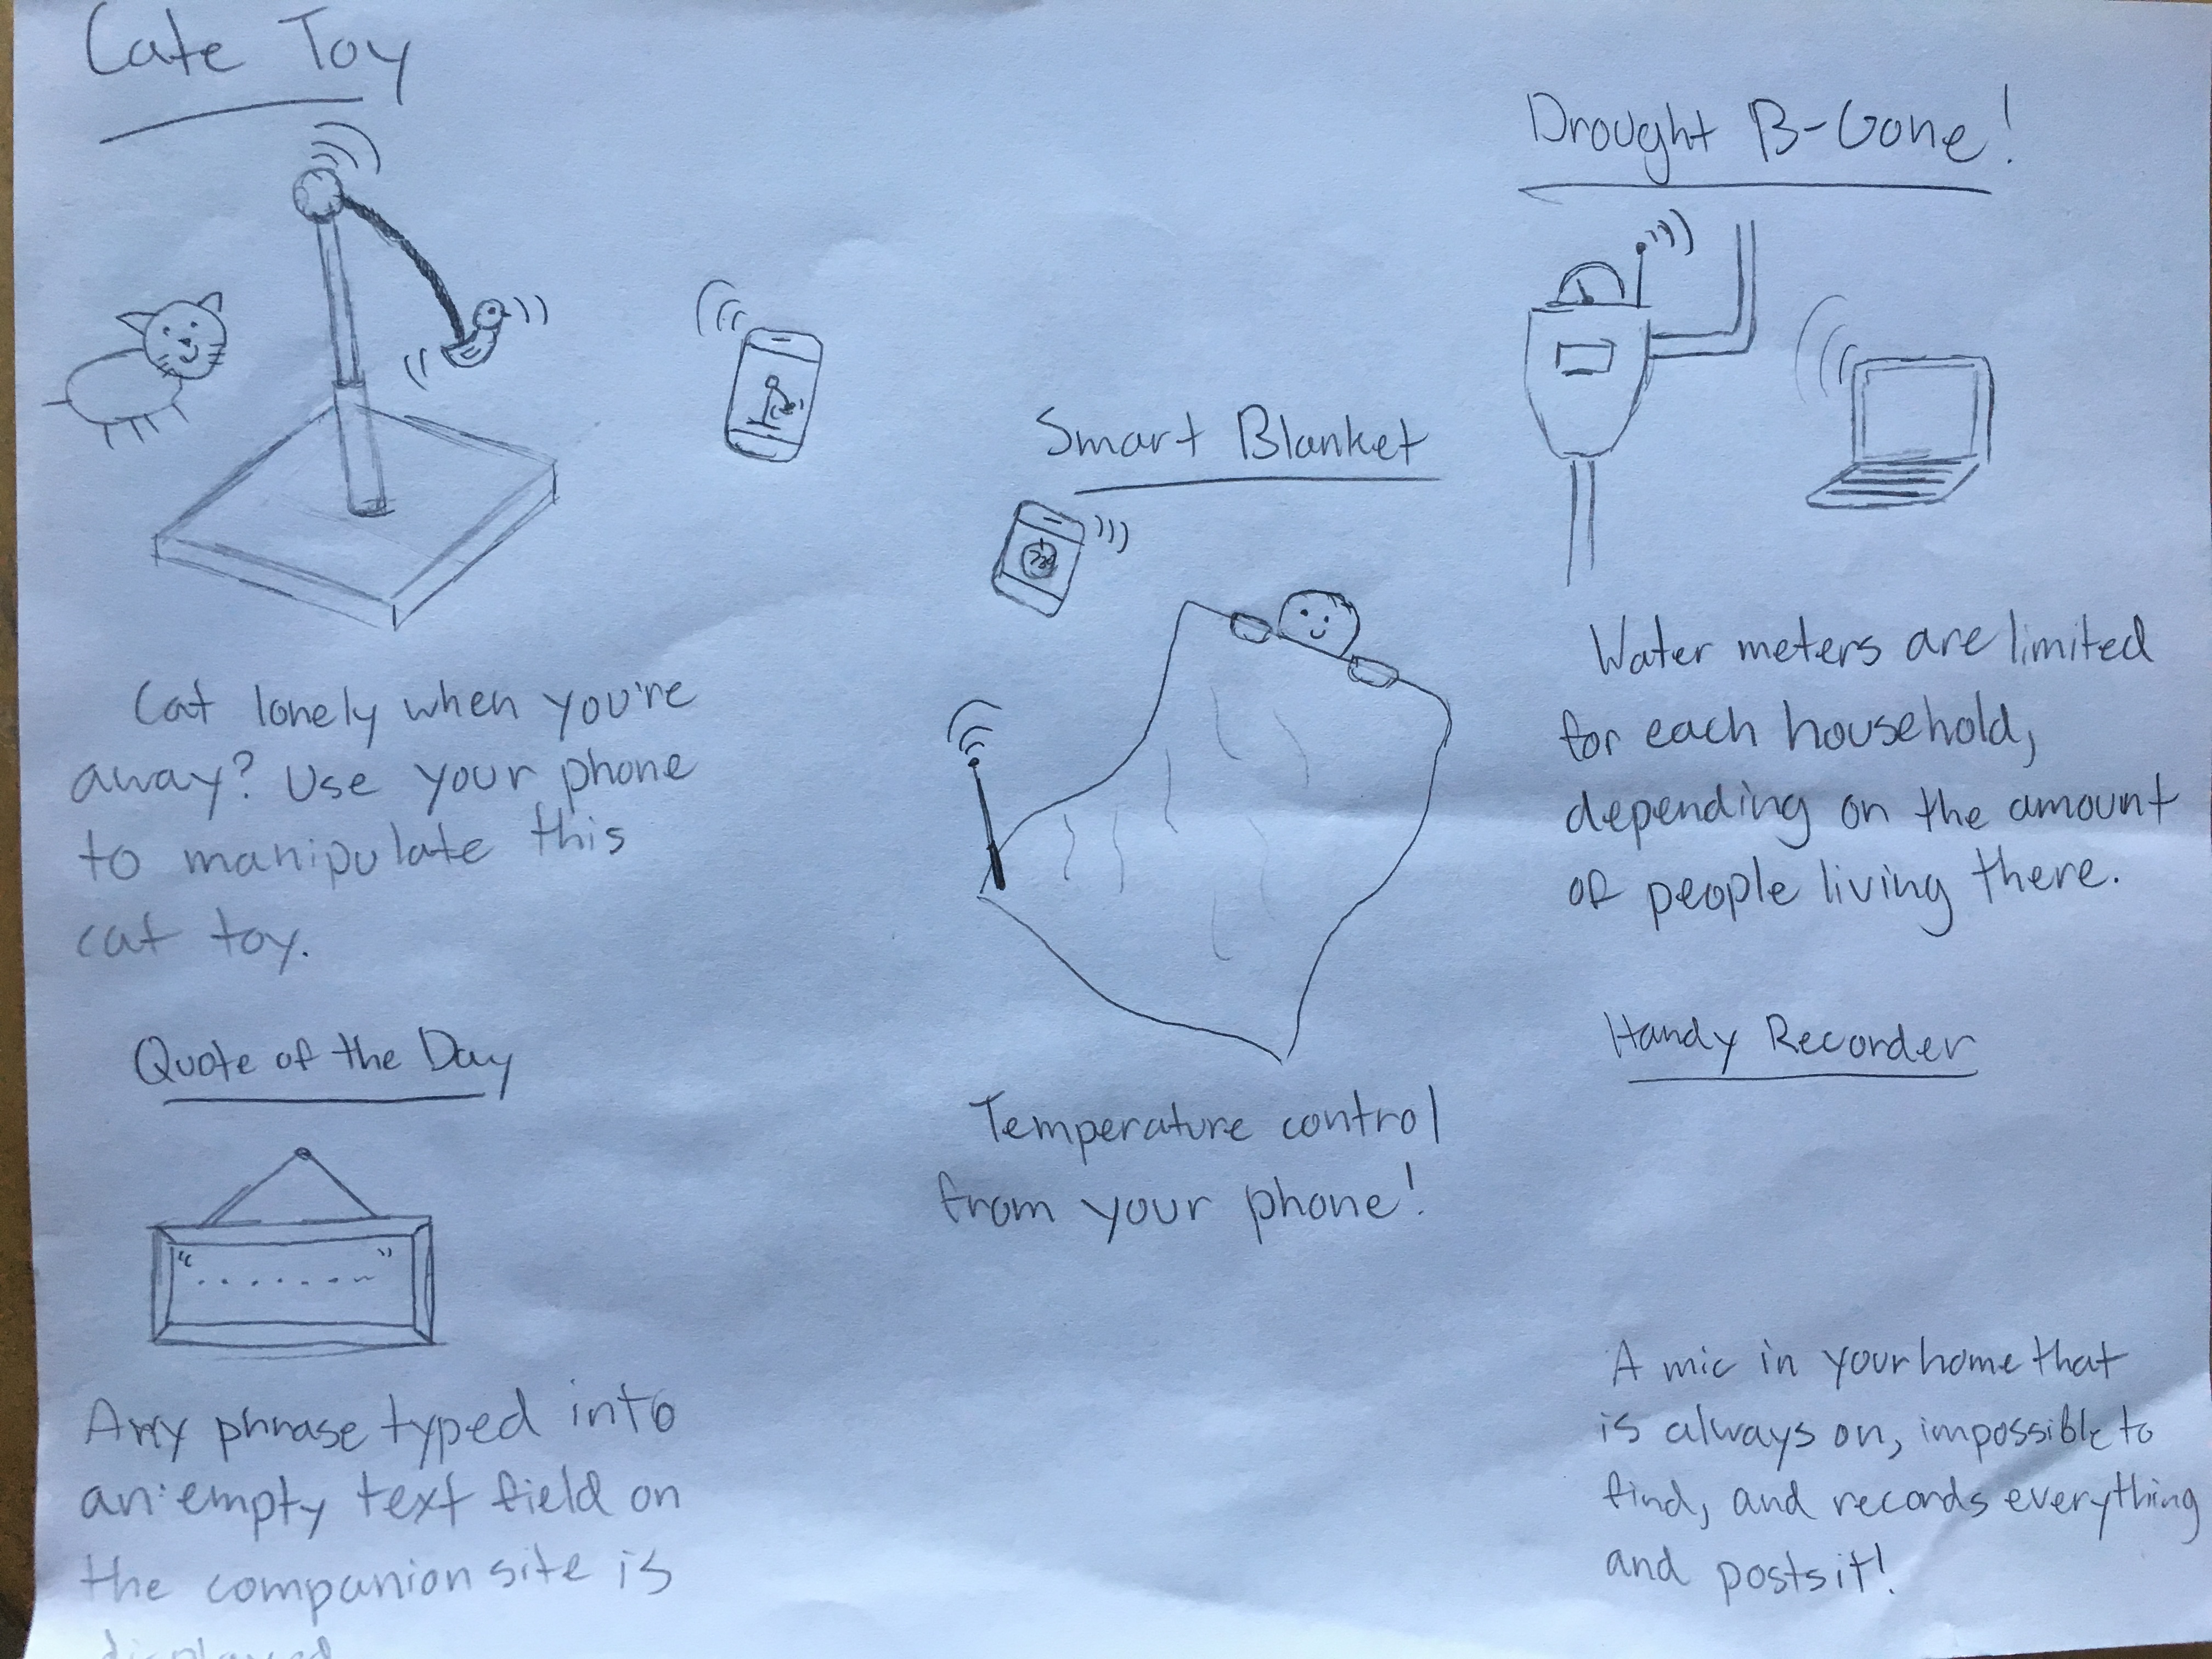 Cate Toy
Cat lonely when you're
away? Use your phone
to manipulate this
cat toy.
Quote of the Day
“ ”
Any phrase typed into
an empty text field on
the companion site is
displayed
Smart Blanket
Temperature control
from your phone!
Drought B-Gone!
Water meters are limited
for each household,
depending on the amount
of people living there.
Handy Recorder
A mic in your home that
is always on, impossible to
find, and records everything
and posts it!